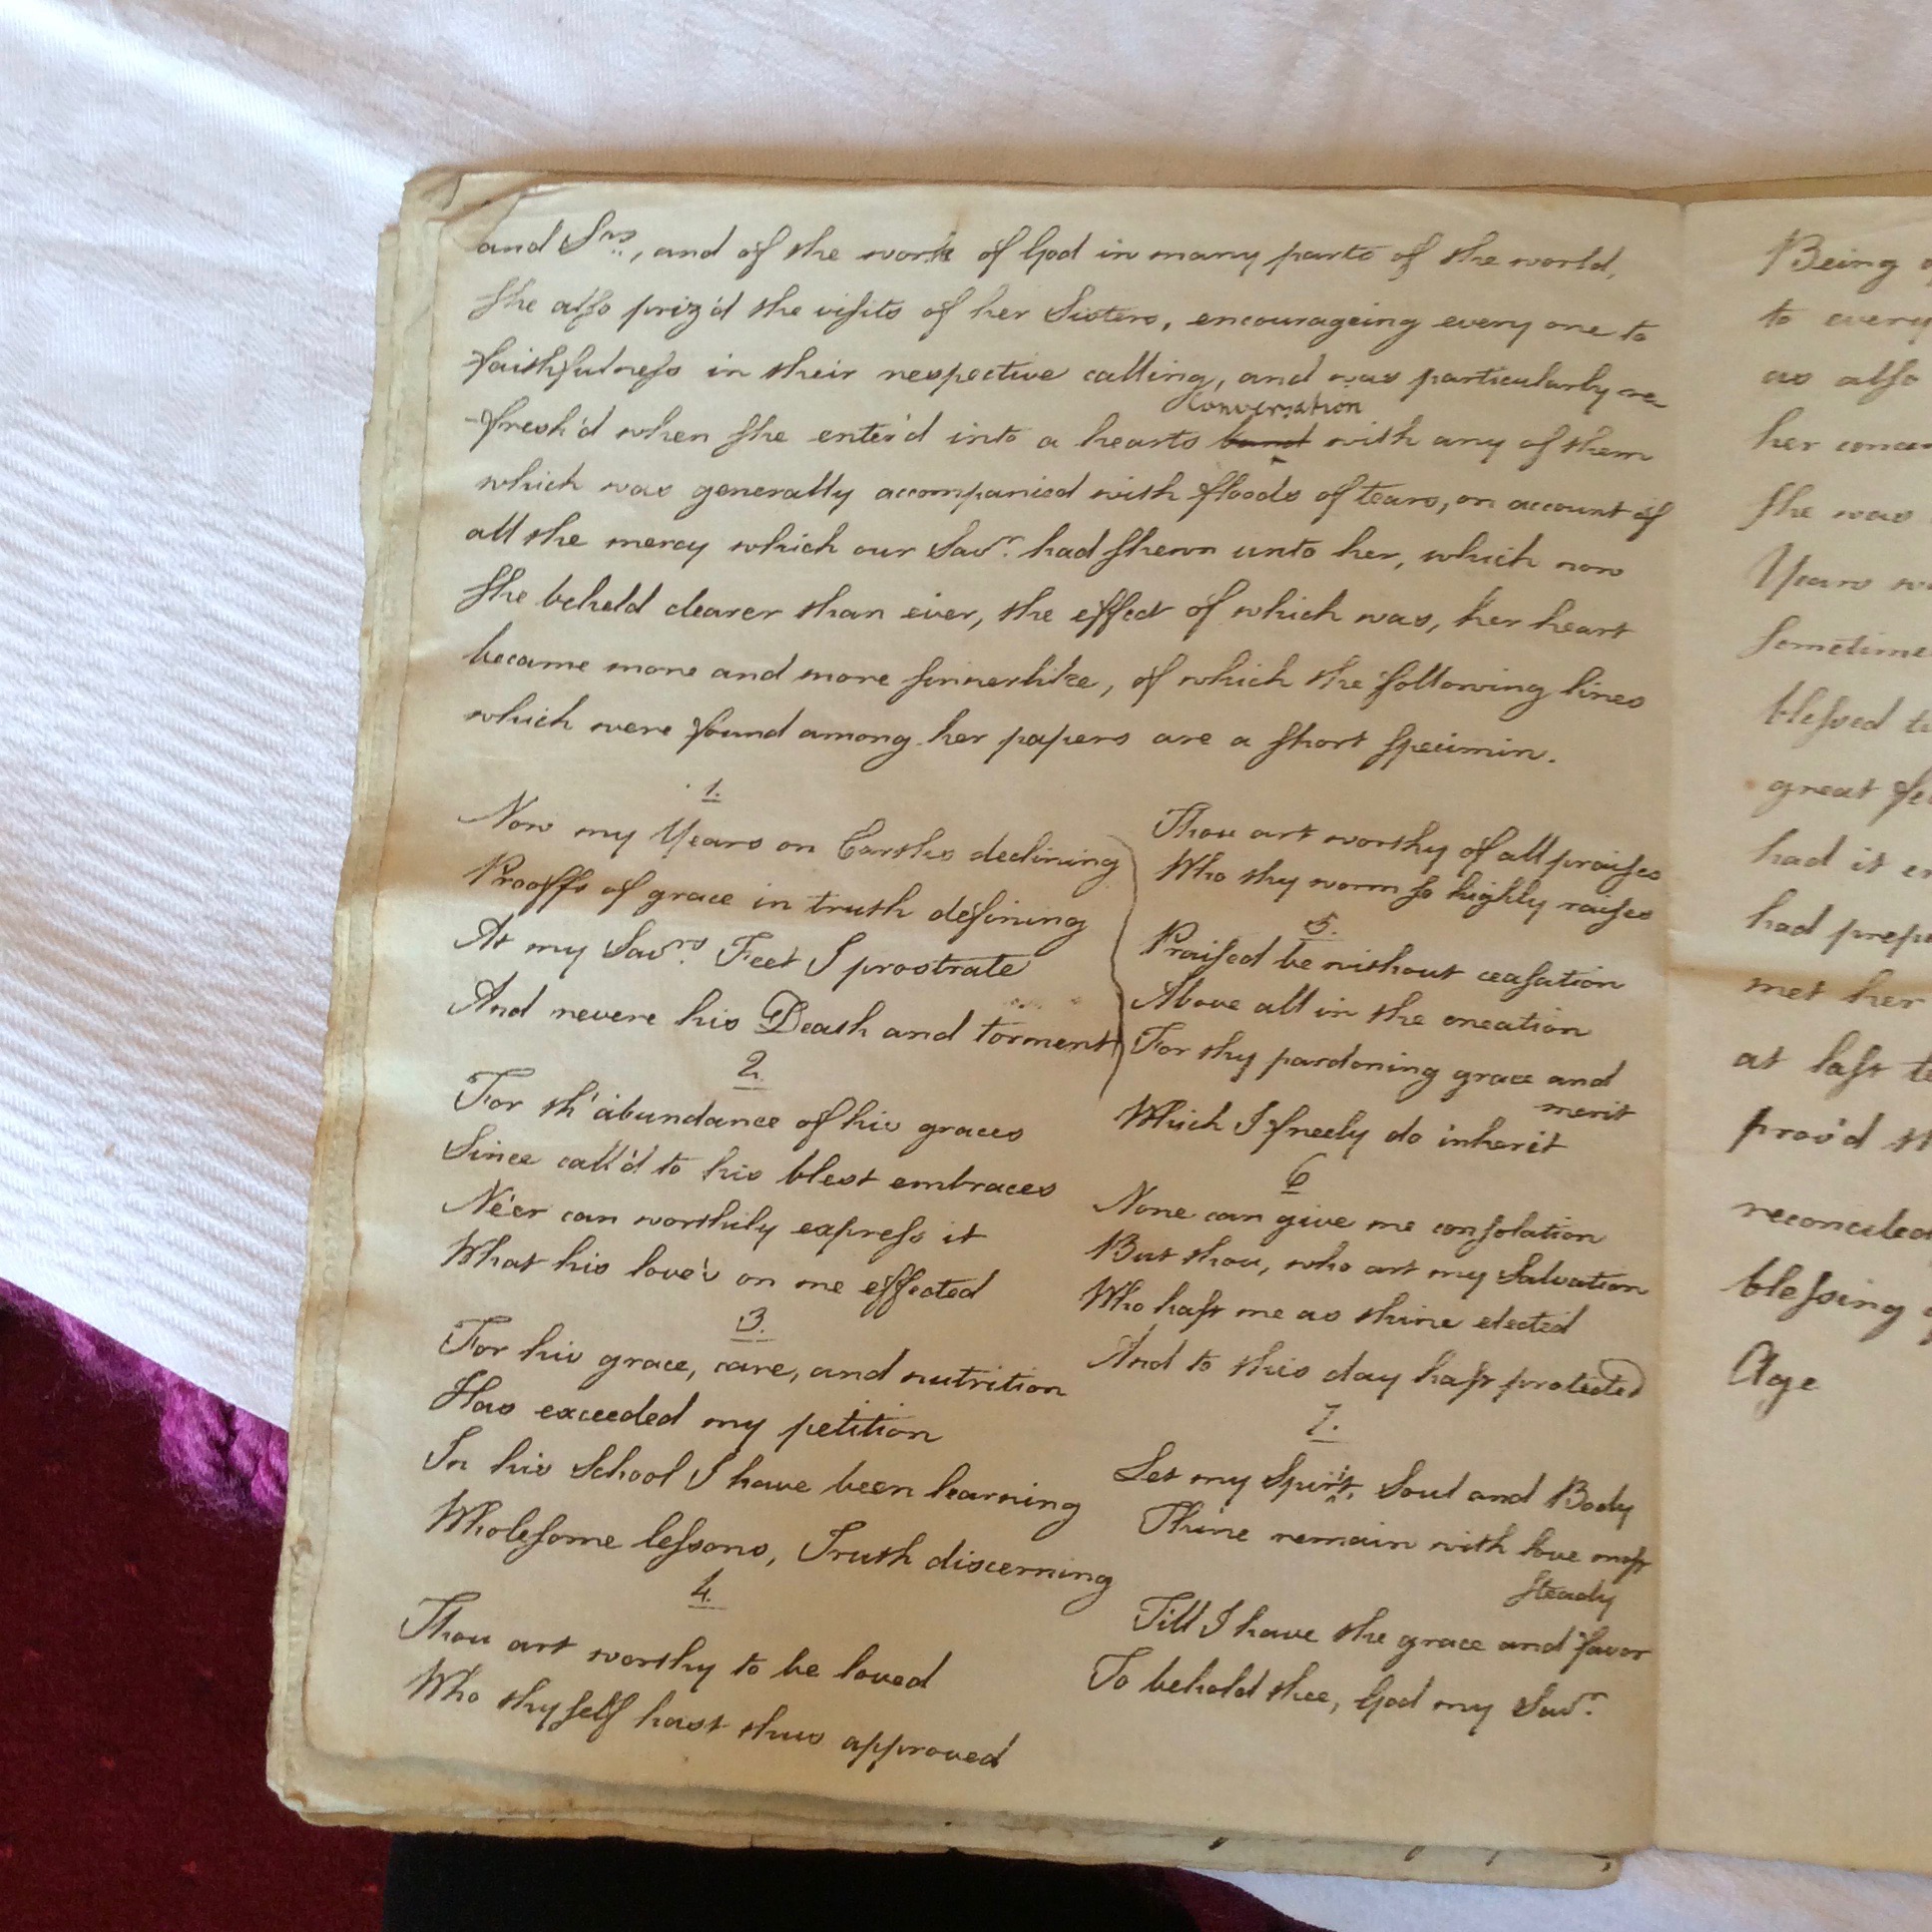 and Srs., and of the work of God in many parts of the world,
she also priz'd the visits of her Sisters, encourageing every one to
faithfulness in their respective calling, and was particularly re-
Conversation
-fresh'd when she enter'd into a hearts band with any of them
which was generally accompanied with floods of tears, on account of
all the mercy which our Savr. had shewn unto her, which now
she beheld clearer than ever, the effect of which was, her heart
became more and more sinnerlike, of which the following lines
which were found among her papers are a short specimin.
1.
Now my Years on Earths declining
Prooffs of grace in truth defining
At my Savrs. Feet I prostrate
And revere his Death and torment
2.
For th' abundance of his graces
Since call'd to his blest embraces
Ne'er can worthily express it
What his love's on me effected
3.
For his grace, care, and nutrition
Has exceeded my petition
In his School I have been learning
Wholesome lessons, Truth discerning
4.
Thou art worthy to be loved
Who thyself hast thus approved
Thou art worthy of all praises
Who thy worm so highly raises
5.
Praised be without ceasation
Above all in the creation
For thy pardoning grace and
merit
Which I freely do inherit
6
None can give me consolation
But thou, who art my Salvation
Who hast me as thine elected
And to this day hast protected
7.
Let my Spirit, Soul and Body
Thine remain with love most
steady
Till I have the grace and favor
To behold thee, God my Savr.
Being
to every
as also
her
she was
Years
sometime
blessed
great
had it
had
met her
at last
prov'd
reconciled
blessing
Age